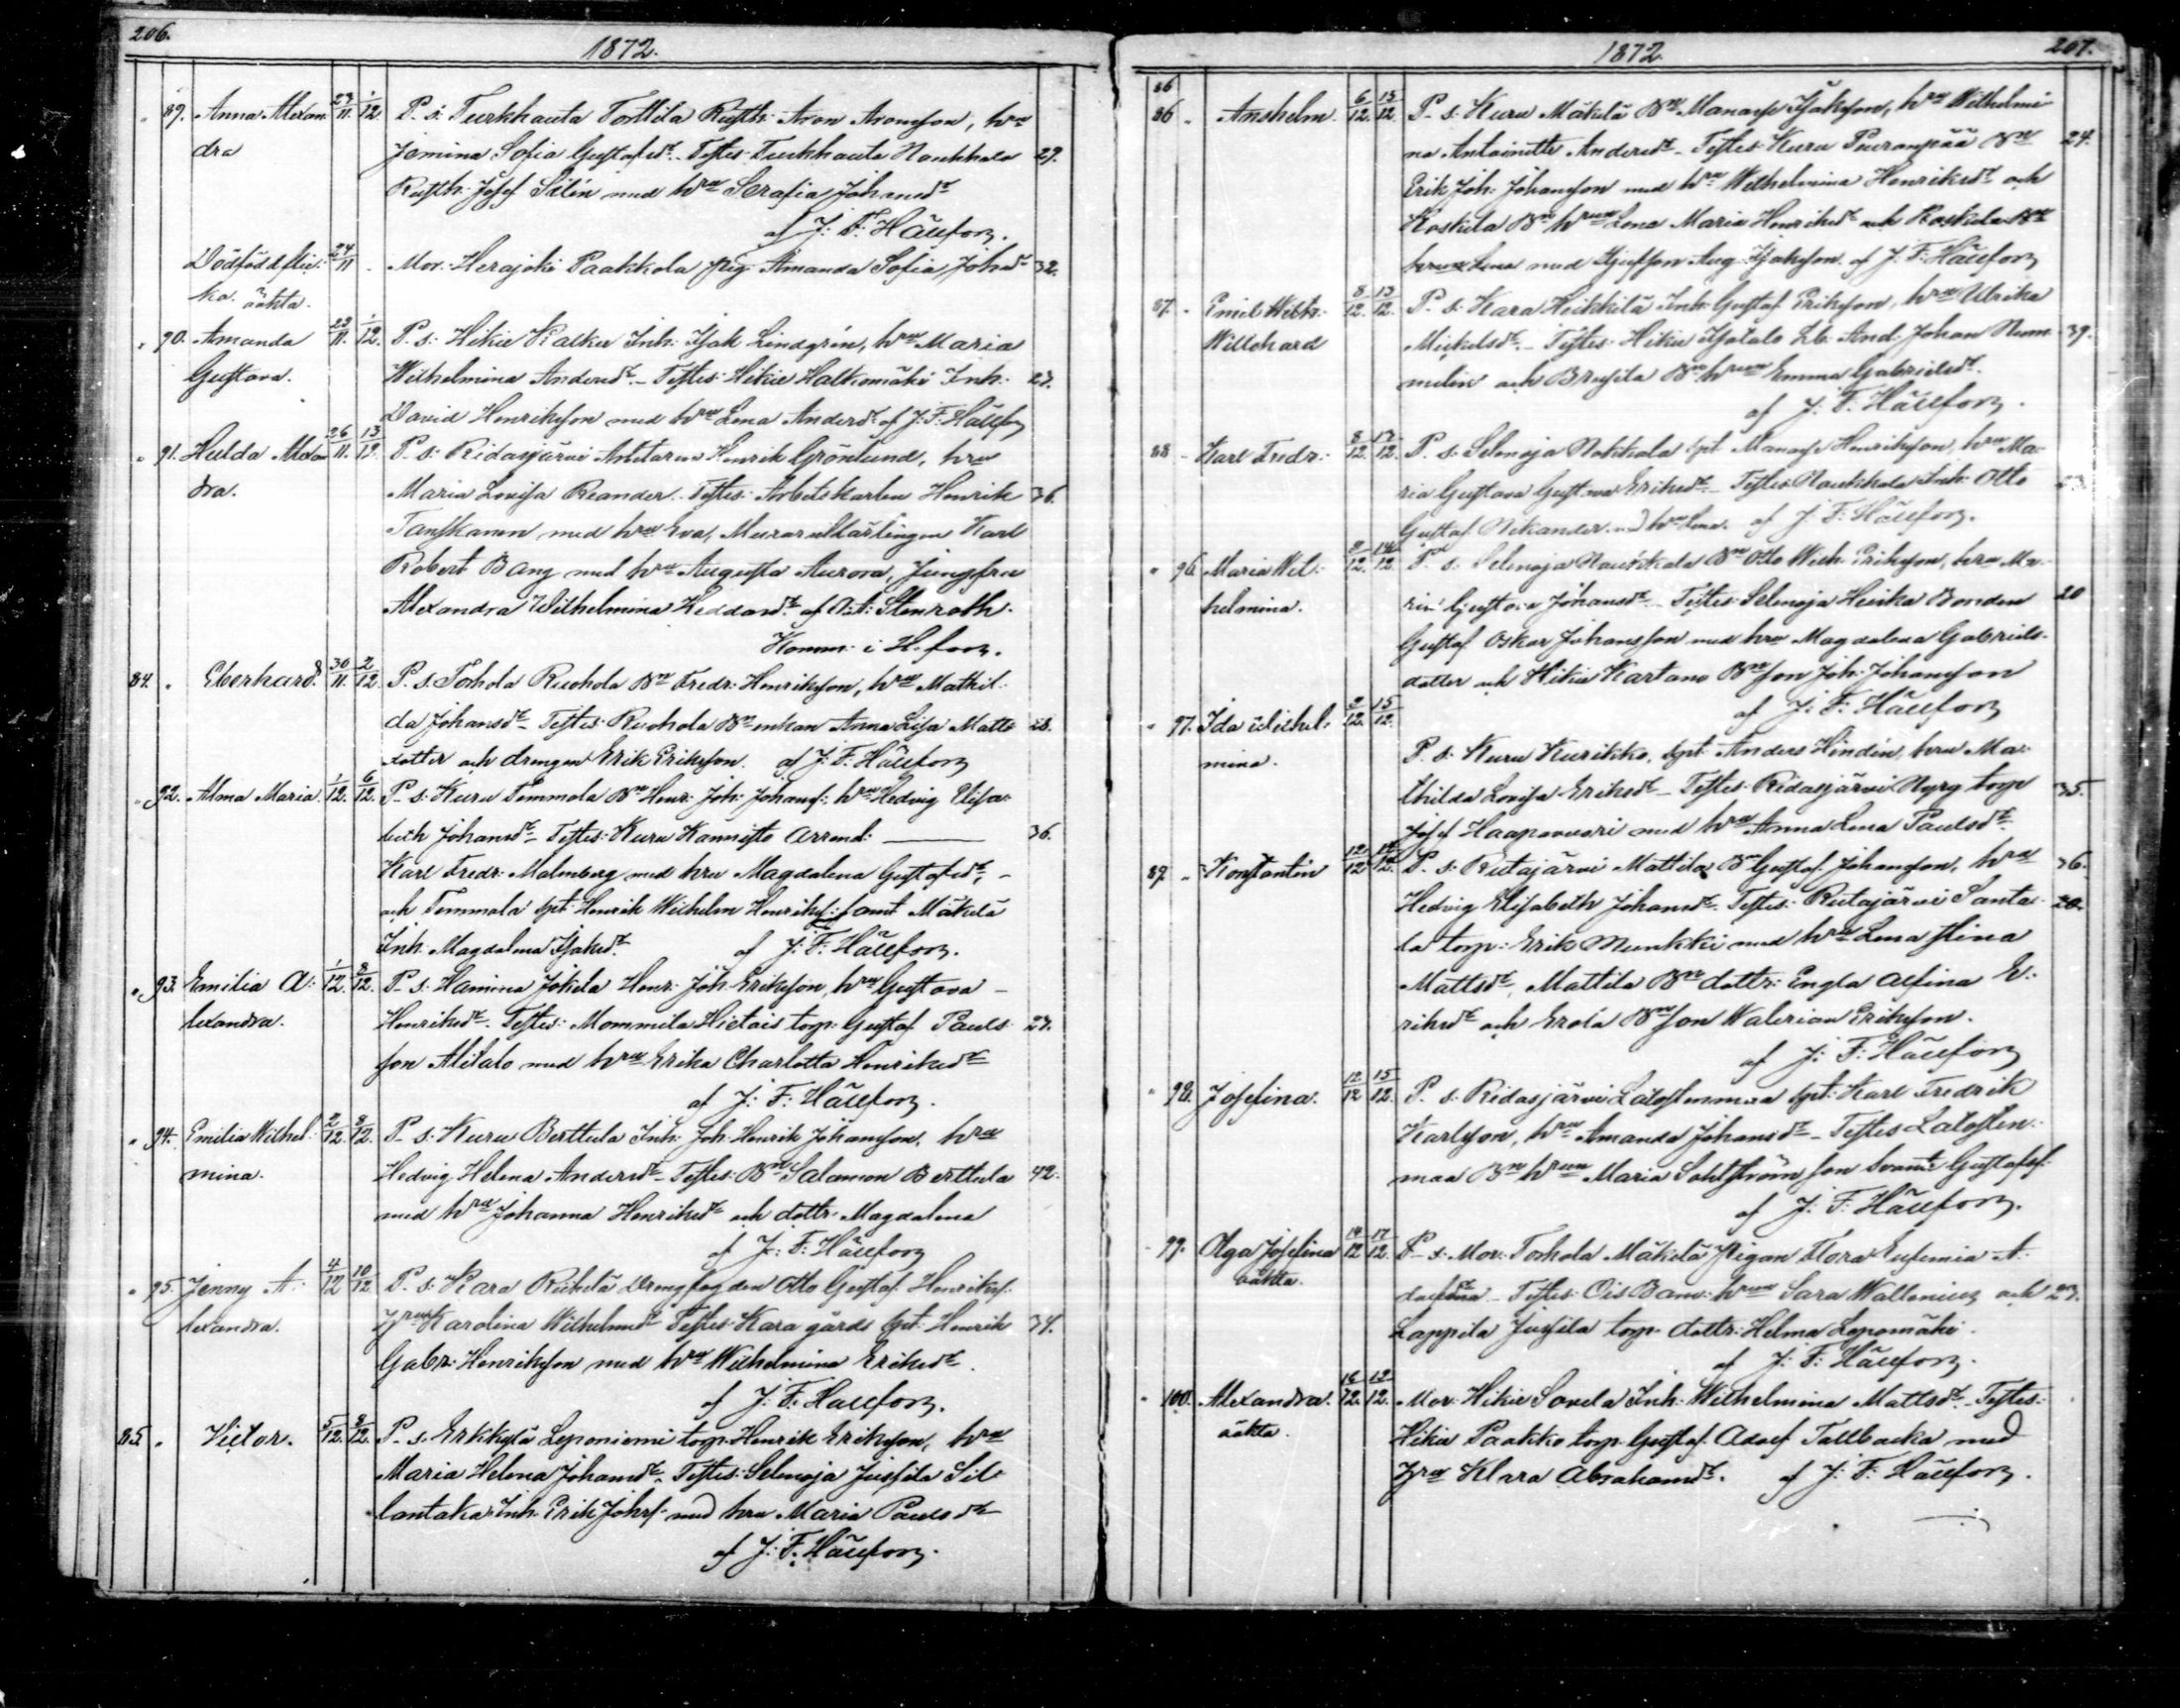 206.
1872.
89. Anna Alexan 23/11 1/12 P. s: Turkhauta Torttila Rusth: Aron Aronsson, hru
dra Jemina Sofia Gustafsdr. Testes: Turkhauta Naukkala 29.
Rusth: Josef Sälin med hru Serafia Johansdr
af J: F: Hällfors.
Dödfödd flic- 24/11 Mor: Herajoki Paakkola pig: Amanda Sofia Johsdr 32.
ka. oäkta.
90. Amanda 23/11 1/12 P. s: Hikie Inh: Isak Lindgrén, hru Maria
Gustava. Wilhelmina Andersdr. - Testes: Hikie Inh:
David Henriksson med hru Lena Andersdr. af J: F: Hällfors
91. Hulda Alexan 26/11 13/12 P. s: Ridasjärvi Arbetaren Henrik Grönlund, hru
dra. Maria Lovisa Reander. Testes: Arbetskarlen Henrik 36.
Tanskanen med hru Eva, Murarelärlingen Karl
Robert Bang med hru Augusta Aurora, Jungfru
Alexandra Wilhelmina af Stenroth.
Komm: i H. fors.
84. Eberhard. 30/11 2/12 P. s. Torhola Ruohola Bn Fredr: Henriksson, hru Mathil-
da Johansdr - Testes: Ruohola Bn enkan Anna Lisa Matts
dotter och drengen Erik Eriksson. af J: F: Hällfors
92. Alma Maria. 1/12 6/12 P. s: Kuru Temmola Bn Henr: Joh: Johans: hru Hedvig Elisa-
beth Johansdr - Testes: Kuru Kannisto Arrend: 36.
Karl Fredr: Malmberg med hru Magdalena Gustafsdr, -
och Temmola spt: Henrik Wilhelm Henriks: samt Mäkelä
Inh: Magdalena Isaksdr. af J: F: Hällfors.
93. Emilia A: 1/12 8/12 P. s: Hamina Jokela Henr: Joh: Eriksson, hru Gustava -
lexandra. Henriksdr. Testes: Mommila Hietais torp: Gustaf Pauls 27.
son Alitalo med hru Erika Charlotta Henriksdr
af J: F: Hällfors.
94. Emilia Wilhel- 2/12 8/12 P. s: Kuru Berttula Inh: Joh: Henrik Johansson, hru
mina. Hedvig Helena Andersdr - Testes: Bn Salomon Berttula 42.
med hru Johanna Henriksdr och dottr: Magdalena
af J: F: Hällfors
95. Jenny A: 4/12 10/12 P. s: Kara Rihelä Drengfogden Otto Gustaf Henriks:
lexandra. hru Karolina Wilhelmsdr Testes: Kara gårds spt: Henrik 34.
Gabr: Henriksson med hru Wilhelmina Eriksdr.
af J: F: Hällfors.
85. Victor. 5/12 8/12 P. s. Erkkylä Leponiemi torp: Henrik Eriksson, hru
Maria Helena Johansdr. Testes: Selmoja Jussila Sil-
lantaka Inh: Erik Johs: med hru Maria Paulsdr
af J: F: Hällfors.
1872.
207.
86
86 Anshelm. 6/12 15/12 P. s: Kuru Mäkelä Bn Manasse Isaksson, hru Wilhelmi
na Antoinette Andersdr - Testes: Kuru Puuranpää Bn 24.
Erik Joh: Johansson med hru Wilhelmina Henriksdr och
Koskela Bn hrun Lena Maria Henriksdr och Koskela Bn
med Aug: Isaksson af J. F: Hällfors
87. Emil Wilh: 8/12 15/12 P. s: Kara Heikkilä Inh: Gustaf Eriksson, hru Ulrika
Willehard Mickelsdr. - Testes: Hikie And: Johan Num 39.
melin och Bn hrun Emma Gabrielsdr.
af J: F: Hällfors.
88 Karl Fredr: 8/12 P. s. Selmoja Nokkala spt: Manasse Henriksson, hru Ma-
ria Gustava Eriksdr - Testes: Naukkala Inh: Otto
Gustaf Nikander med hru Lena. af J: F: Hällfors.
96 Maria Wil- P. s: Selmoja Naukkala Bn Otto Wilh: Eriksson, hru Ma-
helmina. ria Gustava Johansdr - Testes: Selmoja Heikka Bonden 20
Gustaf Oskar Johansson med hru Magdalena Gabriels-
dotter och Hikie Kartano Bn son Joh: Johansson
af J: F: Hällfors
97. Ida Wilhel- 15/12
mina. P. s: Kuru Kurikko, spt: Anders Hindén, hru Ma-
thilda Lovisa Eriksdr - Testes: Ridasjärvi Nyry torp 35.
Josef Haapavuori med hru Anna Lena Paulsdr.
89 Konstantin 12/12 P. s: Ridasjärvi Mattila Bn Gustaf Johansson, hru 36.
Hedvig Elisabeth Johansdr. Testes: Ridasjärvi Santa- 20.
la torp: Erik Munkki med hru Lena Stina
Mattsdr, Mattila Bn dottr: Engla Alfina E-
riksdr och Erola Bn son Walerian Eriksson.
af J: F: Hällfors
98. Josefina. 12/12 15/12 P. s. Ridasjärvi Latostenmaa spt: Karl Fredrik
Karlsson, hru Amanda Johansdr - Testes Latosten-
maa Bn hrun Maria Sohlström son Svante Gustafs:
af J: F: Hällfors.
99. Olga Josefina 14/12 17/12 P. s. Mor: Torhola Mäkelä Pigan Flora Eufemia A-
oäkta. dolfina - Testes: Ois Banv: hrun Sara Wallenius och 23.
Lappila Jussila torp: dottr: Helma Lepomäki.
af J: F: Hällfors.
100. Alexandra. 16/12 19/12 Mor: Hikie Sovela Inh: Wilhelmina Mattsdr - Testes:
oäkta. Hikie Paakko torp: Gustaf Adolf Tallbacka med
hru Klara Abrahamsdr. af J: F: Hällfors.